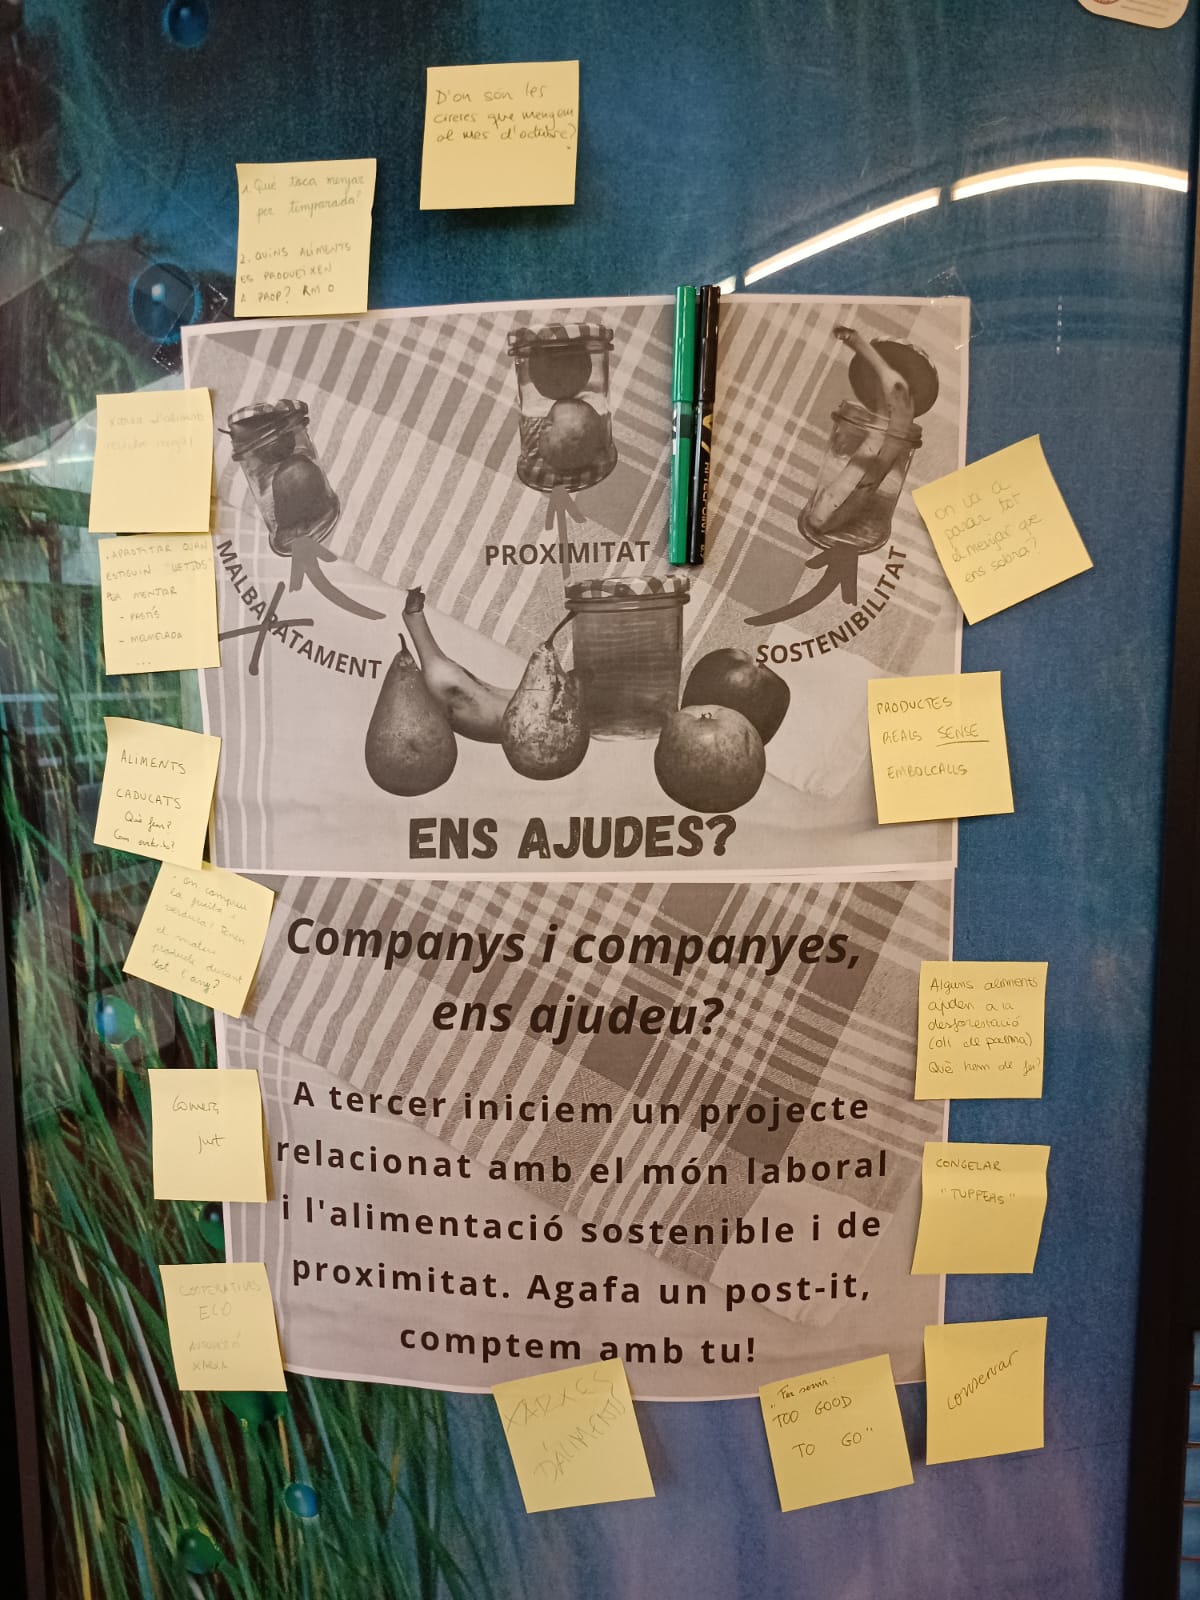 D'on són les
cireres que mengem
al mes d'octubre?
1. Què toca menjar
per temporada?
2. QUINS ALIMENTS
ES PRODUEIXEN
A PROP? KM 0
xarxa d'aliments
APROFITAR QUAN
ESTIGUIN "LLETJOS"
PER MENJAR
- PASTÍS
- MELMELADA
...
ALIMENTS
CADUCATS
Què fem?
Com evitar-ho?
· On compreu
la fruita i
verdura? Tenen
el mateix
producte durant
tot l'any?
Comerç
just
COOPERATIVES
ECO
XARXA
PROXIMITAT
MALBARATAMENT
SOSTENIBILITAT
ENS AJUDES?
Companys i companyes,
ens ajudeu?
A tercer iniciem un projecte
relacionat amb el món laboral
i l'alimentació sostenible i de
proximitat. Agafa un post-it,
comptem amb tu!
On va a
parar tot
el menjar que
ens sobra?
PRODUCTES
REALS SENSE
EMBOLCALLS
Alguns aliments
ajuden a la
desforestació
(oli de palma)
Què hem de fer?
CONGELAR
"TUPPERS"
conservar
XARXES
D'ALIMENTS
"Fer servir:
TOO GOOD
TO GO"